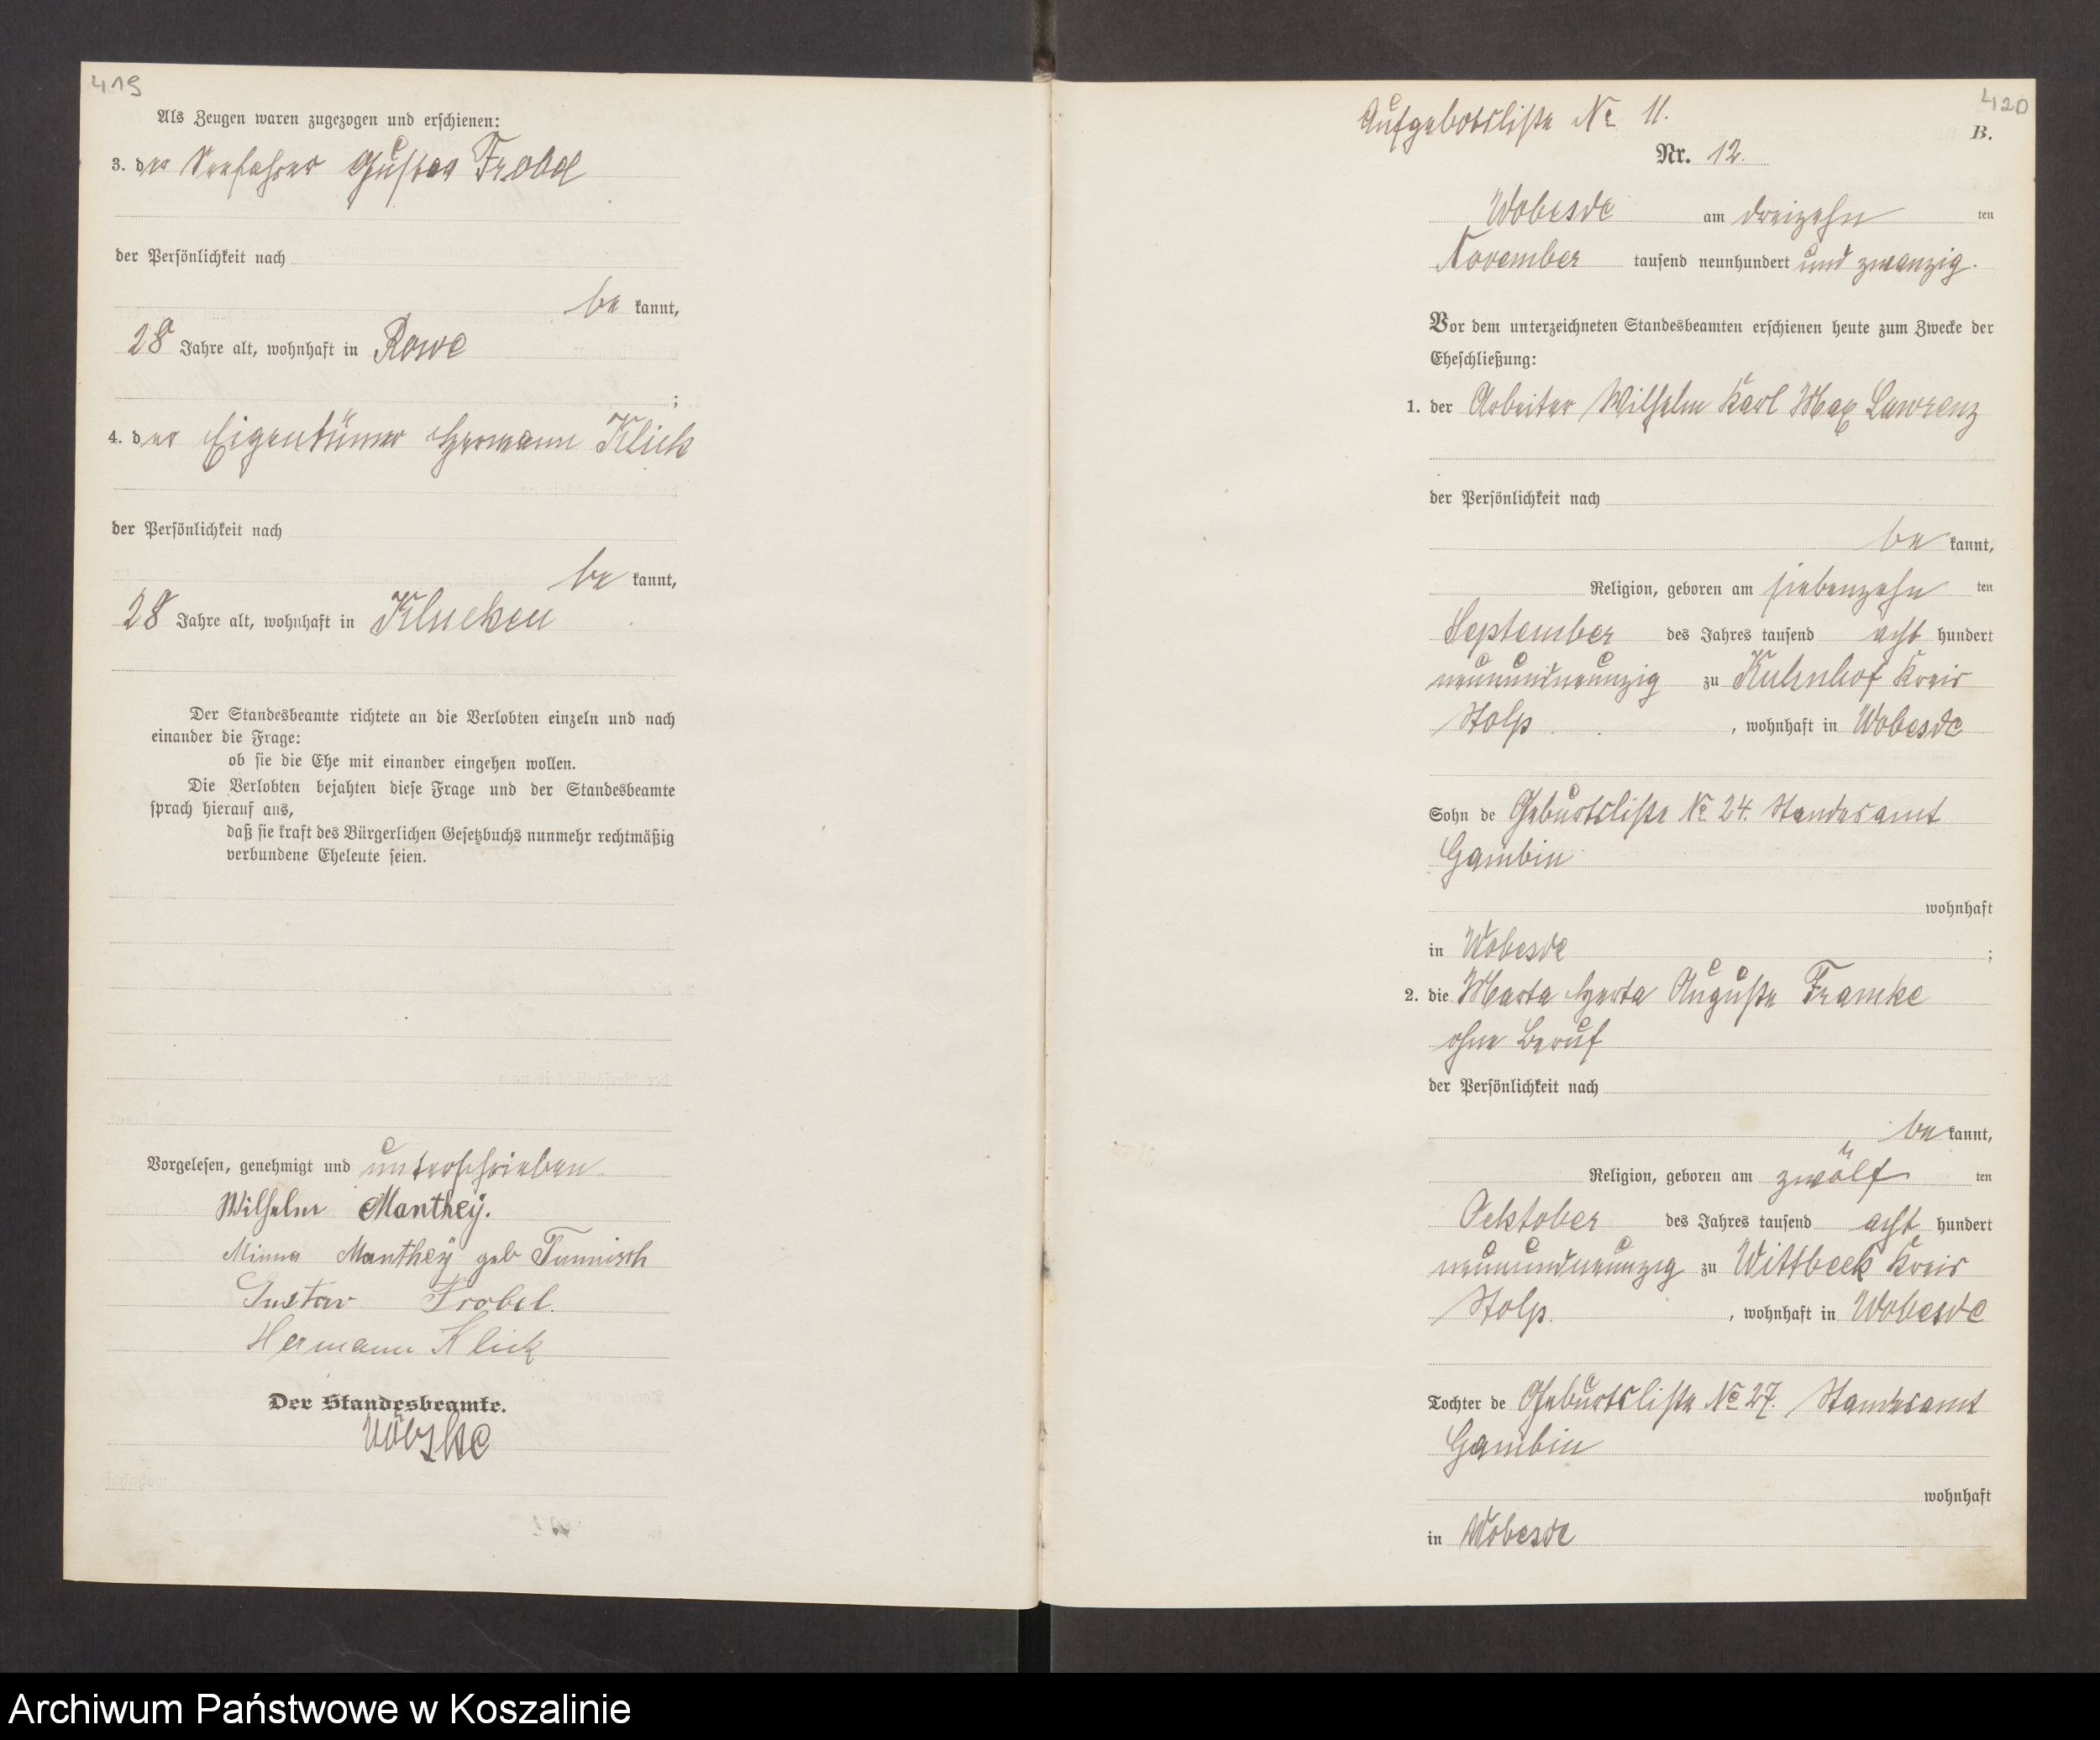 419
Als Zeugen waren zugezogen und erschienen:
3. der Seefahrer Gustav Frobel
der Persönlichkeit nach
be kannt,
28 Jahre alt, wohnhaft in Rowe
;
4. der Eigentümer Hermann Klick
der Persönlichkeit nach
be kannt,
28 Jahre alt, wohnhaft in Klucken
Der Standesbeamte richtete an die Verlobten einzeln und nach
einander die Frage:
ob sie die Ehe mit einander eingehen wollen.
Die Verlobten bejahten diese Frage und der Standesbeamte
sprach hierauf aus,
daß sie kraft des Bürgerlichen Gesetzbuchs nunmehr rechtmäßig
verbundene Eheleute seien.
Vorgelesen, genehmigt und unterschrieben
Wilhelm Manthey.
Minna Manthey geb
Gustav Frobel.
Hermann Klick
Der Standesbeamte.
420
Aufgebotsliste No 11.
B.
Nr. 12.
Wobesde am dreizehn ten
November tausend neunhundert und zwanzig.
Vor dem unterzeichneten Standesbeamten erschienen heute zum Zwecke der
Eheschließung:
1. der Arbeiter Wilhelm Karl Max Lawrenz
der Persönlichkeit nach
be kannt,
Religion, geboren am siebenzehn ten
September des Jahres tausend acht hundert
neunundneunzig zu Kuhnhof Kreis
Stolp , wohnhaft in Wobesde
Sohn de Geburtsliste No 24. Standesamt
Gambin
wohnhaft
in Wobesde ;
2. die Marta Herta Auguste Framke
ohne Beruf
der Persönlichkeit nach
be kannt,
Religion, geboren am zwölf ten
Ocktober des Jahres tausend acht hundert
neunundneunzig zu Wittbeck Kreis
Stolp. , wohnhaft in Wobesde
Tochter de Geburtsliste No 27. Standesamt
Gambin
wohnhaft
in Wobesde
Archiwum Państwowe w Koszalinie